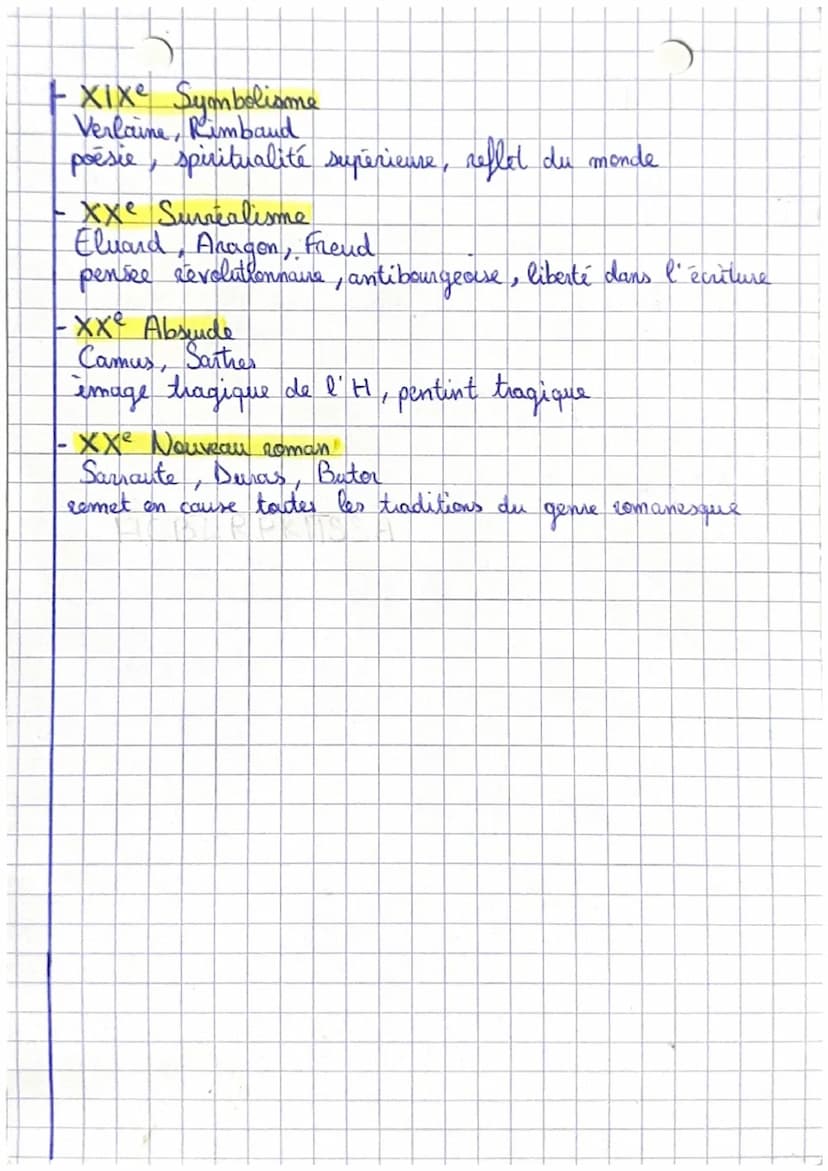 - XIXe Symbolisme
Verlaine, Rimbaud
poésie, spiritualité supérieure, reflet du monde
- XXe Surréalisme
Eluard, Aragon, Freud
pensée révolutionnaire, antibourgeoise, liberté dans l'écriture
- XXe Absurde
Camus, Sartres
image tragique de l'H, pentint tragique
- XXe Nouveau roman
Sarraute, Duras, Butor
remet en cause toutes les traditions du genre romanesque